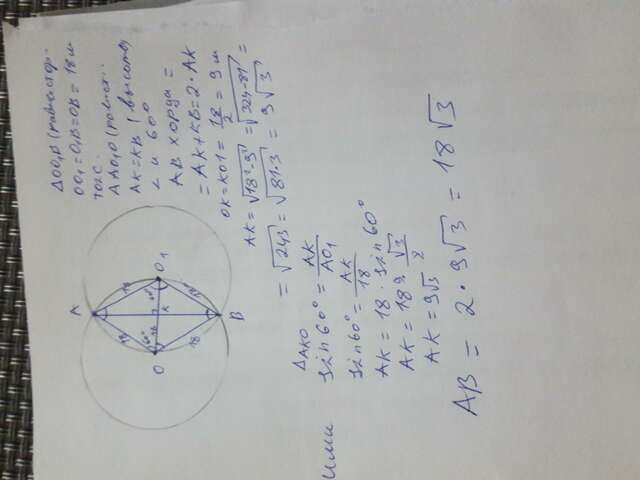 ΔOO₁B (равностор.
OO₁ = O₁B = OB = 18 м
тоже.
ΔAO₁O (равност..
AK = KB ( высота,
∠ и 60°
AB хорда =
= AK + KB = 2 · AK
OK = KO1 = 18/2 = 9 м
AK = √18²-9² = √324-81 =
= √243 = √81·3 = 9√3
A
O
O₁
B
K
18
18
18
18
60°
60°
Или
ΔAKO
sin 60° = AK/AO₁
sin 60° = AK/18
AK = 18 · sin 60°
AK = 18 9 · √3/2
AK = 9√3
AB = 2 · 9√3 = 18√3